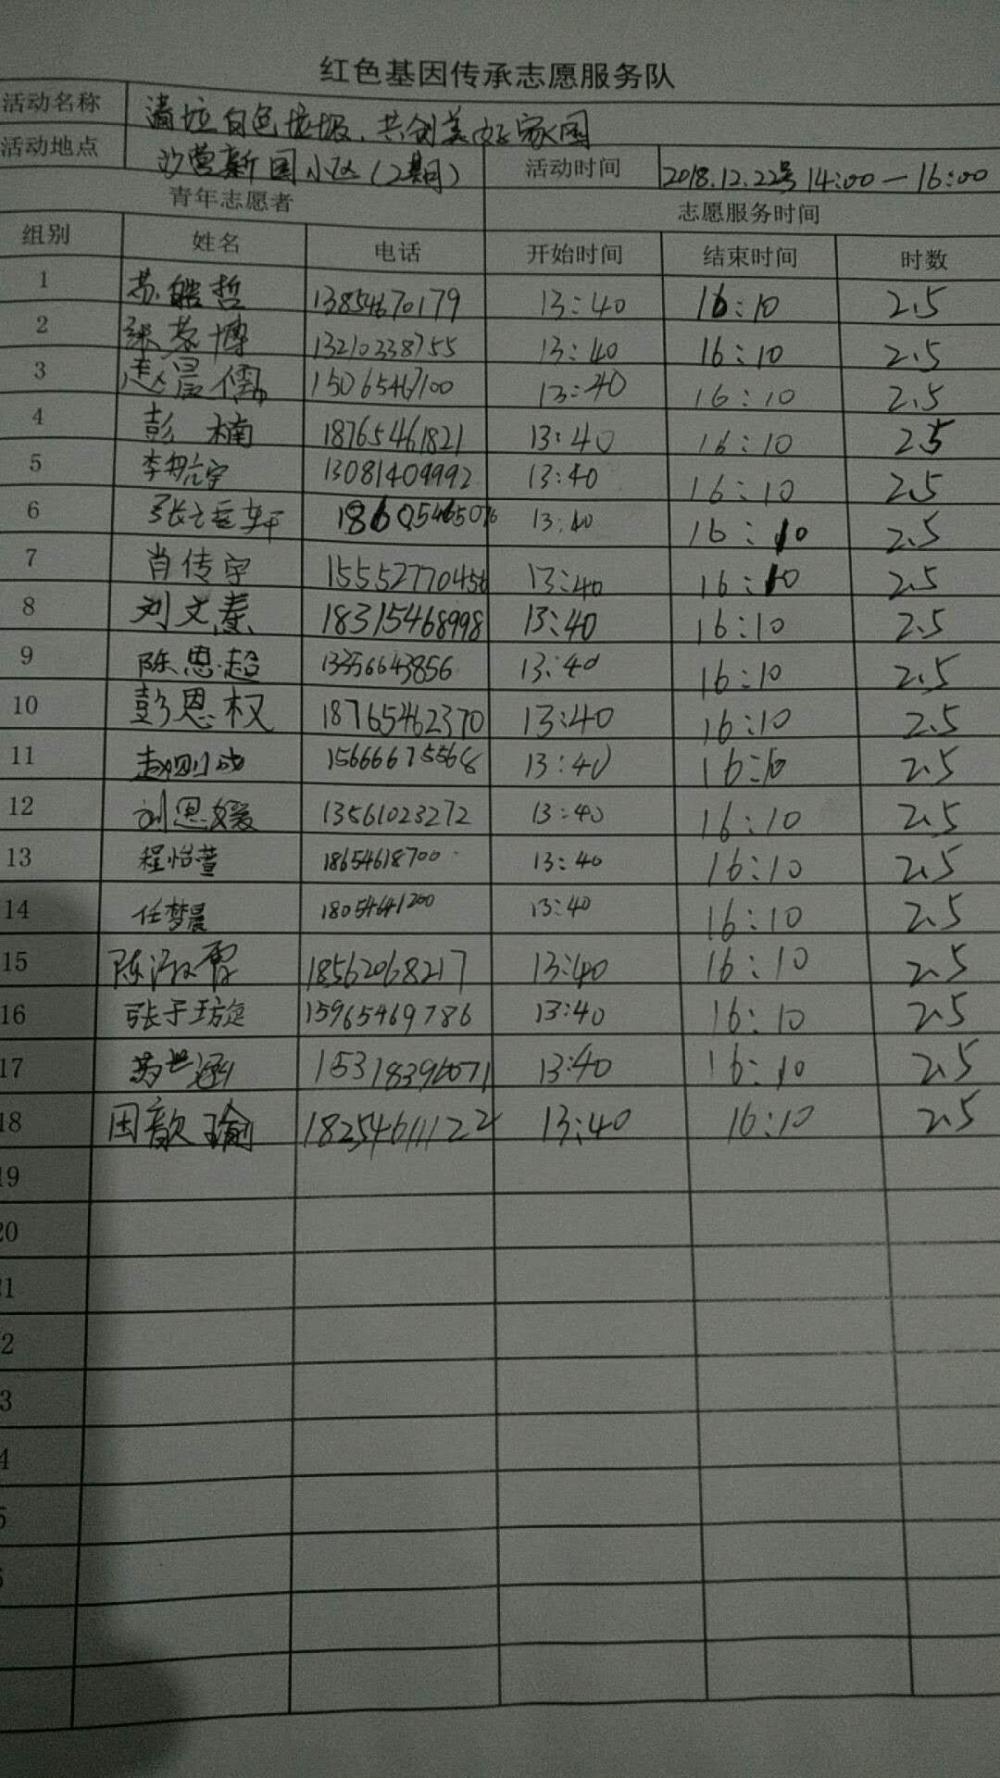 红色基因传承志愿服务队
活动名称 清垃白色垃圾、共创美好家园
活动地点 新园小区(2期) 活动时间 2018.12.22号 14:00—16:00
青年志愿者 志愿服务时间
组别 姓名 电话 开始时间 结束时间 时数
1 苏皓哲 13854670179 13:40 16:10 2.5
2 13210338755 13:40 16:10 2.5
3 赵晨儒 15065467100 13:40 16:10 2.5
4 彭楠 18765461821 13:40 16:10 2.5
5 李航宇 13081404992 13:40 16:10 2.5
6 18605465076 13:40 16:10 2.5
7 肖传宇 15552770456 13:40 16:10 2.5
8 刘文熹 18315468998 13:40 16:10 2.5
9 陈思超 13356643856 13:40 16:10 2.5
10 彭恩权 18765462370 13:40 16:10 2.5
11 15666675568 13:40 16:10 2.5
12 刘恩媛 13561023272 13:40 16:10 2.5
13 程怡萱 18654618700 13:40 16:10 2.5
14 任梦晨 18054641200 13:40 16:10 2.5
15 18562068217 13:40 16:10 2.5
16 张于 15965469786 13:40 16:10 2.5
17 15318396071 13:40 16:10 2.5
18 田歆瑜 18254611122 13:40 16:10 2.5
19
20